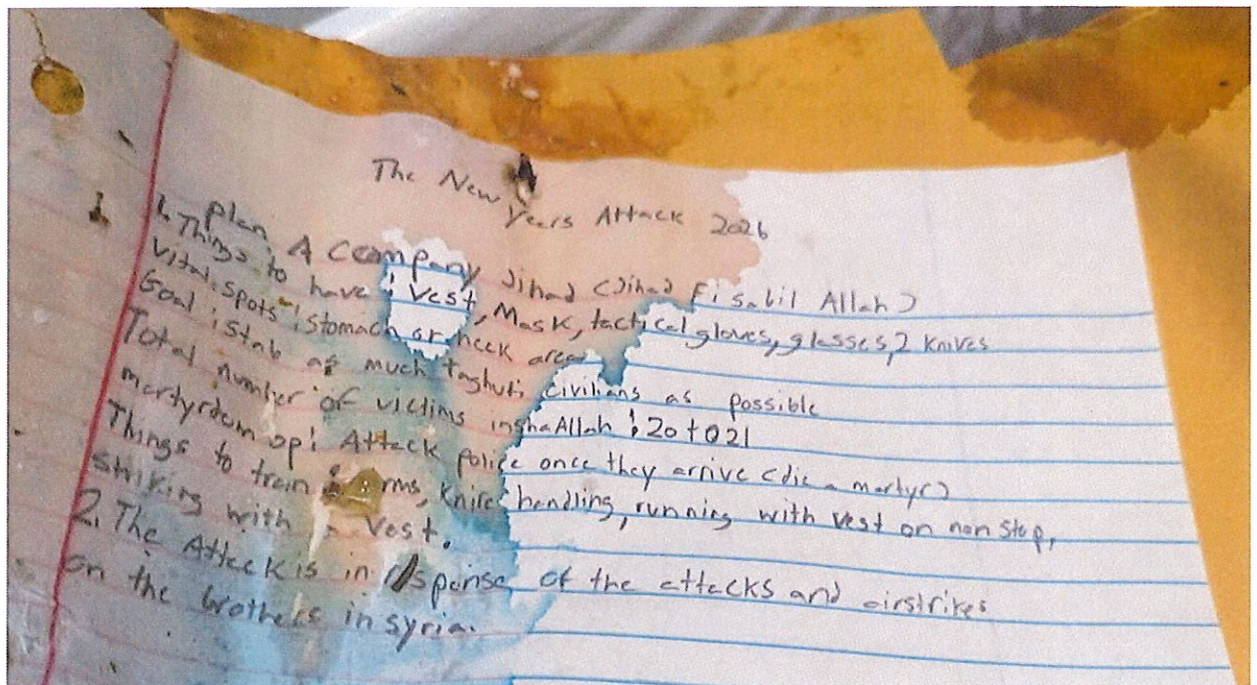 The New Years Attack 2026
plan. A Company Jihad (Jihad Fi sabil Allah)
1. Things to have: Vest, Mask, tactical gloves, glasses, 2 knives
Vital spots: stomach or neck area
Goal: stab as much taghuti civilians as possible
Total number of victims inshaAllah: 20 to 21
martyrdom op: Attack police once they arrive (die a martyr)
Things to train: Knife handling, running with vest on non stop,
striking with a vest.
2. The Attack is in response of the attacks and airstrikes
on the brothers in syria.